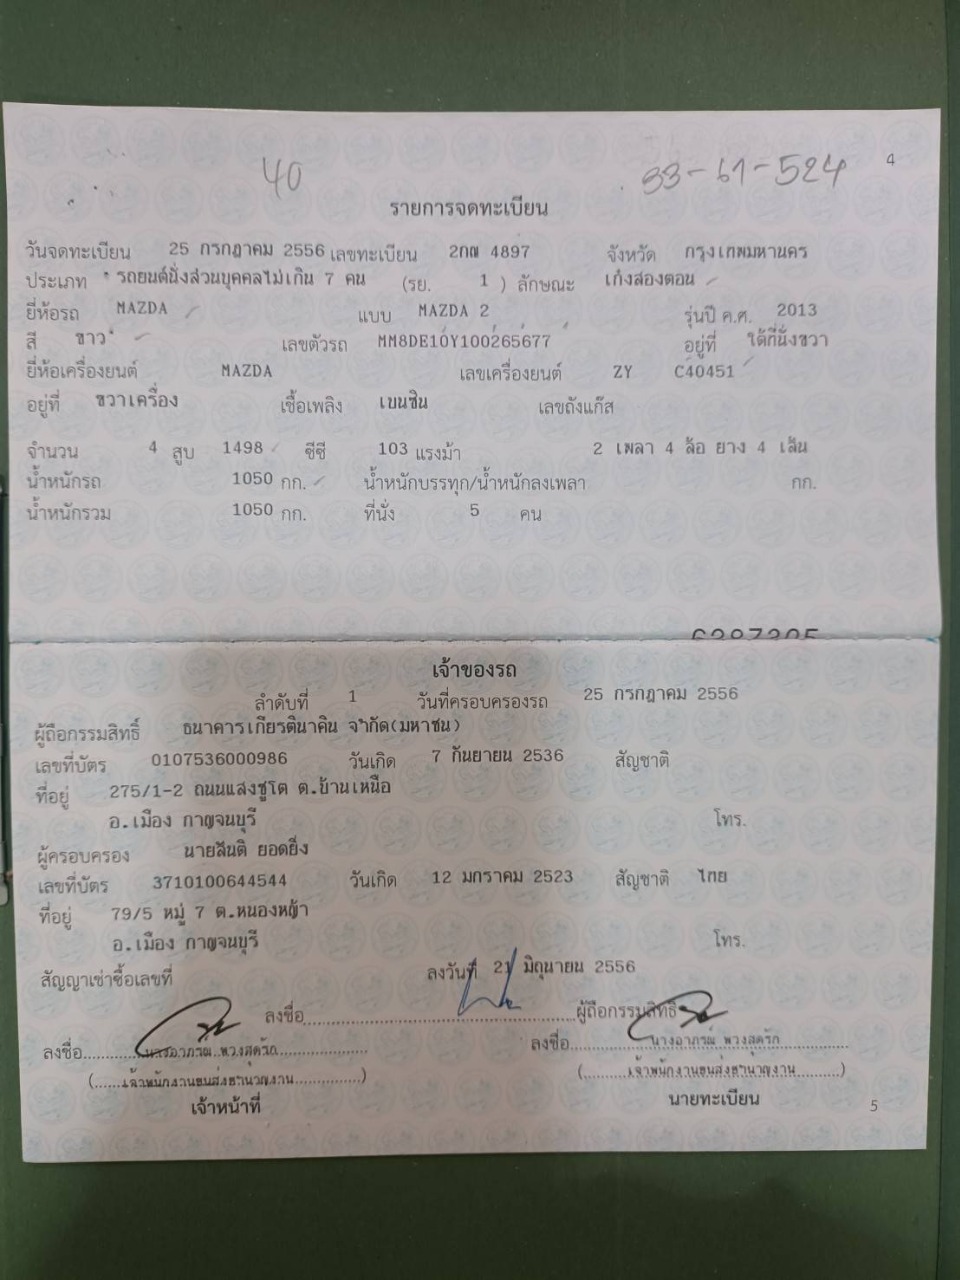 40
33-61-524
4
รายการจดทะเบียน
วันจดทะเบียน 25 กรกฎาคม 2556 เลขทะเบียน 2กณ 4897 จังหวัด กรุงเทพมหานคร
ประเภท รถยนต์นั่งส่วนบุคคลไม่เกิน 7 คน (รย. 1 ) ลักษณะ เก๋งสองตอน
ยี่ห้อรถ MAZDA แบบ MAZDA 2 รุ่นปี ค.ศ. 2013
สี ขาว เลขตัวรถ MM8DE10Y100265677 อยู่ที่ ใต้ที่นั่งขวา
ยี่ห้อเครื่องยนต์ MAZDA เลขเครื่องยนต์ ZY C40451
อยู่ที่ ขวาเครื่อง เชื้อเพลิง เบนซิน เลขถังแก๊ส
จำนวน 4 สูบ 1498 ซีซี 103 แรงม้า 2 เพลา 4 ล้อ ยาง 4 เส้น
น้ำหนักรถ 1050 กก. น้ำหนักบรรทุก/น้ำหนักลงเพลา กก.
น้ำหนักรวม 1050 กก. ที่นั่ง 5 คน
เจ้าของรถ
ลำดับที่ 1 วันที่ครอบครองรถ 25 กรกฎาคม 2556
ผู้ถือกรรมสิทธิ์ ธนาคารเกียรตินาคิน จำกัด(มหาชน)
เลขที่บัตร 0107536000986 วันเกิด 7 กันยายน 2536 สัญชาติ
ที่อยู่ 275/1-2 ถนนแสงชูโต ต.บ้านเหนือ
อ.เมือง กาญจนบุรี โทร.
ผู้ครอบครอง นายสันติ ยอดยิ่ง
เลขที่บัตร 3710100644544 วันเกิด 12 มกราคม 2523 สัญชาติ ไทย
ที่อยู่ 79/5 หมู่ 7 ต.หนองหญ้า
อ.เมือง กาญจนบุรี โทร.
สัญญาเช่าซื้อเลขที่ ลงวันที่ 21 มิถุนายน 2556
ลงชื่อ ผู้ถือกรรมสิทธิ์
ลงชื่อ นางอาภรณ์ พวงสดรัก ลงชื่อ นางอาภรณ์ พวงสดรัก
(เจ้าพนักงานขนส่งชำนาญงาน) (เจ้าพนักงานขนส่งชำนาญงาน)
เจ้าหน้าที่ นายทะเบียน
5